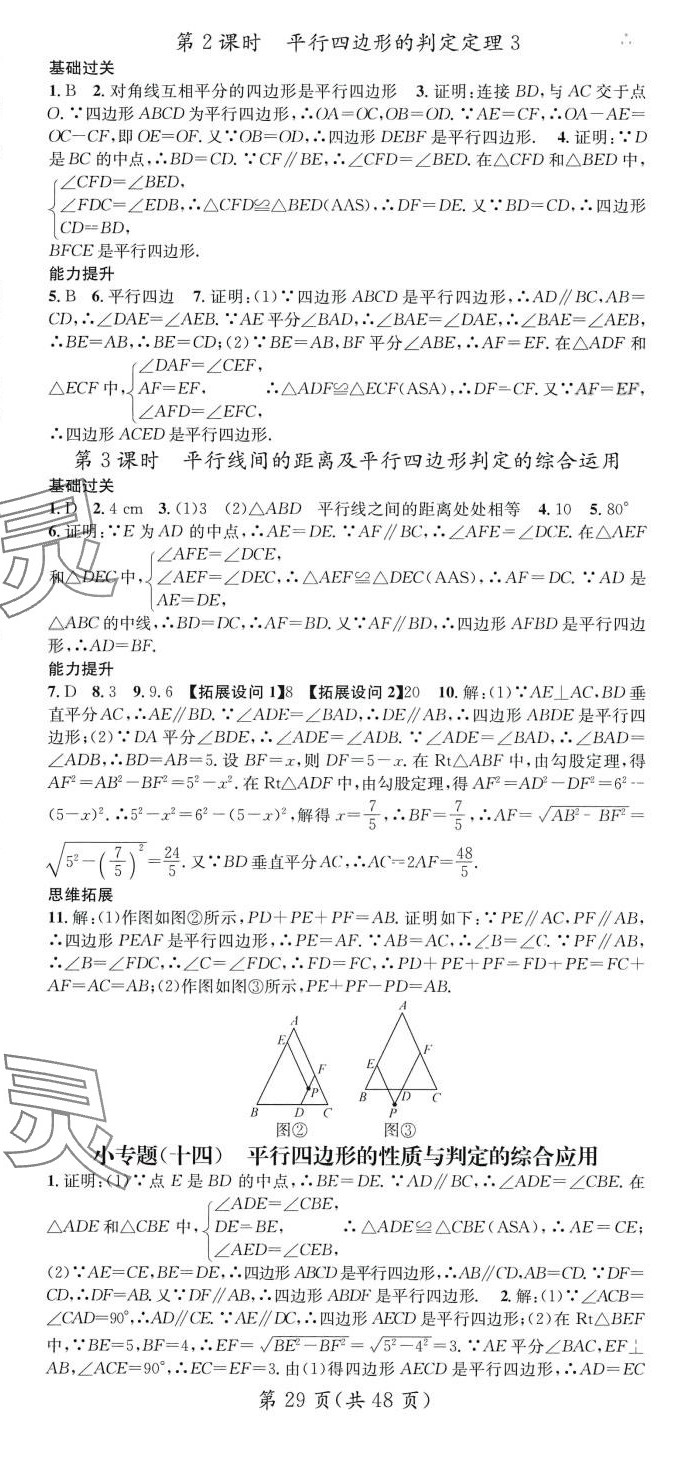 第2课时　平行四边形的判定定理3
基础过关
1.B　2.对角线互相平分的四边形是平行四边形　3.证明:连接BD,与AC交于点
O.∵四边形ABCD为平行四边形,∴OA=OC,OB=OD.∵AE=CF,∴OA-AE=
OC-CF,即OE=OF.又∵OB=OD,∴四边形DEBF是平行四边形.　4.证明:∵D
是BC的中点,∴BD=CD.∵CF∥BE,∴∠CFD=∠BED.在△CFD和△BED中,
∠CFD=∠BED,
∠FDC=∠EDB,∴△CFD≌△BED(AAS),∴DF=DE.又∵BD=CD,∴四边形
CD=BD,
BFCE是平行四边形.
能力提升
5.B　6.平行四边　7.证明:(1)∵四边形ABCD是平行四边形,∴AD∥BC,AB=
CD,∴∠DAE=∠AEB.∵AE平分∠BAD,∴∠BAE=∠DAE,∴∠BAE=∠AEB,
∴BE=AB,∴BE=CD;(2)∵BE=AB,BF平分∠ABE,∴AF=EF.在△ADF和
∠DAF=∠CEF,
△ECF中,AF=EF,　∴△ADF≌△ECF(ASA),∴DF=CF.又∵AF=EF,
∠AFD=∠EFC,
∴四边形ACED是平行四边形.
第3课时　平行线间的距离及平行四边形判定的综合运用
基础过关
1.D　2.4 cm　3.(1)3　(2)△ABD　平行线之间的距离处处相等　4.10　5.80°
6.证明:∵E为AD的中点,∴AE=DE.∵AF∥BC,∴∠AFE=∠DCE.在△AEF
∠AFE=∠DCE,
和△DEC中,∠AEF=∠DEC,∴△AEF≌△DEC(AAS),∴AF=DC.∵AD是
AE=DE,
△ABC的中线,∴BD=DC,∴AF=BD.又∵AF∥BD,∴四边形AFBD是平行四边
形,∴AD=BF.
能力提升
7.D　8.3　9.9.6　【拓展设问1】8　【拓展设问2】20　10.解:(1)∵AE⊥AC,BD垂
直平分AC,∴AE∥BD.∵∠ADE=∠BAD,∴DE∥AB,∴四边形ABDE是平行四
边形;(2)∵DA平分∠BDE,∴∠ADE=∠ADB.∵∠ADE=∠BAD,∴∠BAD=
∠ADB,∴BD=AB=5.设BF=x,则DF=5-x.在Rt△ABF中,由勾股定理,得
AF²=AB²-BF²=5²-x².在Rt△ADF中,由勾股定理,得AF²=AD²-DF²=6²-
(5-x)².∴5²-x²=6²-(5-x)²,解得x=7/5,∴BF=7/5,∴AF=√(AB²-BF²)=
√(5²-(7/5)²)=24/5.又∵BD垂直平分AC,∴AC=2AF=48/5.
思维拓展
11.解:(1)作图如图②所示,PD+PE+PF=AB.证明如下:∵PE∥AC,PF∥AB,
∴四边形PEAF是平行四边形,∴PE=AF.∵AB=AC,∴∠B=∠C.∵PF∥AB,
∴∠B=∠FDC,∴∠C=∠FDC,∴FD=FC,∴PD+PE+PF=FD+PE=FC+
AF=AC=AB;(2)作图如图③所示,PE+PF-PD=AB.
A
E
F
P
B D C
图②
A
E
F
B D C
P
图③
小专题(十四)　平行四边形的性质与判定的综合应用
1.证明:(1)∵点E是BD的中点,∴BE=DE.∵AD∥BC,∴∠ADE=∠CBE.在
∠ADE=∠CBE,
△ADE和△CBE中,DE=BE,　∴△ADE≌△CBE(ASA),∴AE=CE;
∠AED=∠CEB,
(2)∵AE=CE,BE=DE,∴四边形ABCD是平行四边形,∴AB∥CD,AB=CD.∵DF=
CD,∴DF=AB.又∵DF∥AB,∴四边形ABDF是平行四边形.　2.解:(1)∵∠ACB=
∠CAD=90°,∴AD∥CE.∵AE∥DC,∴四边形AECD是平行四边形;(2)在Rt△BEF
中,∵BE=5,BF=4,∴EF=√(BE²-BF²)=√(5²-4²)=3.∵AE平分∠BAC,EF⊥
AB,∠ACE=90°,∴EC=EF=3.由(1)得四边形AECD是平行四边形,∴AD=EC
第29页(共48页)
灵
灵